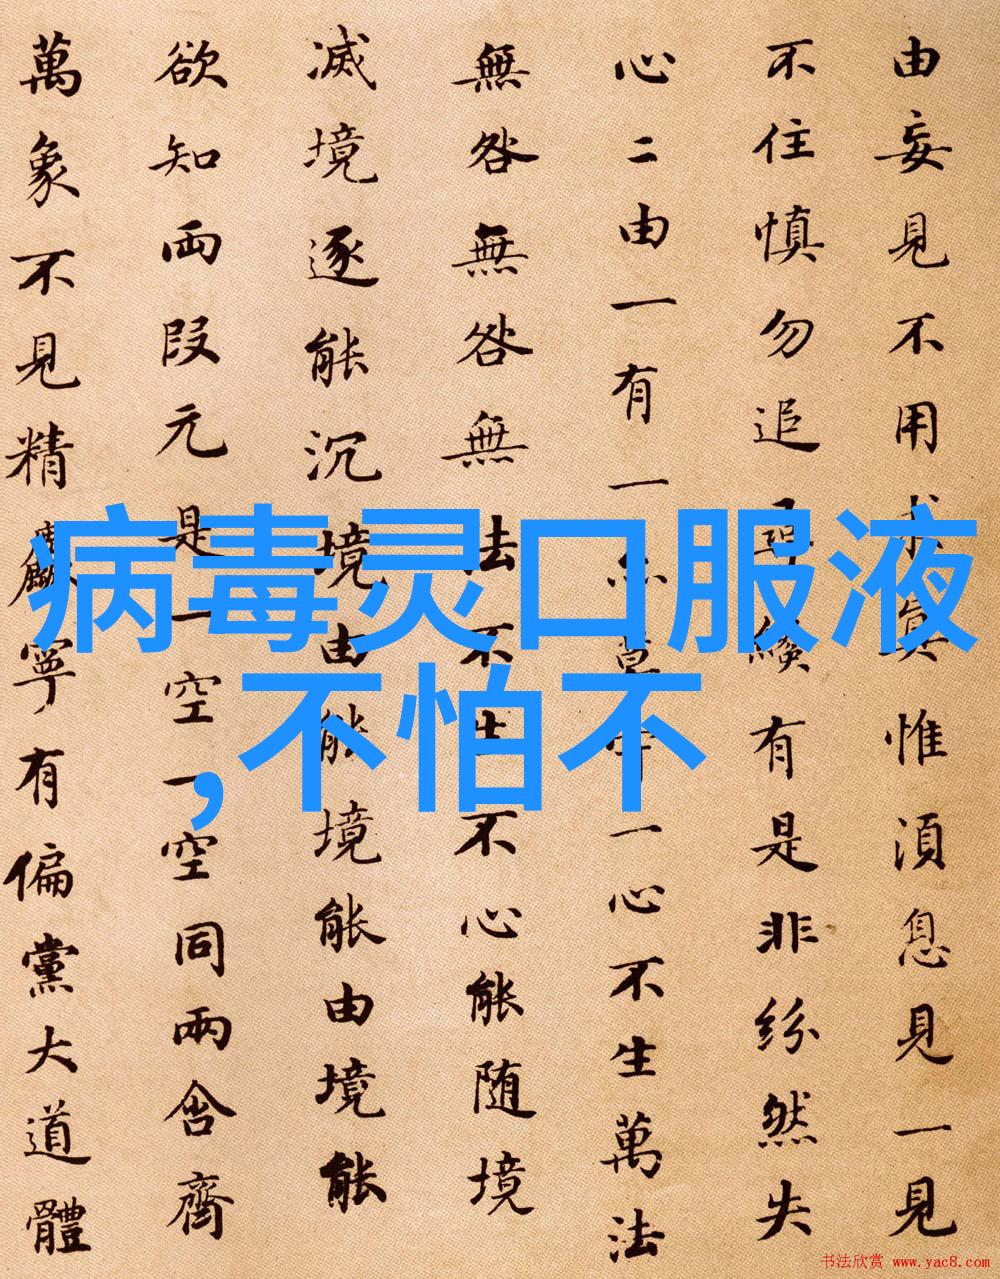 由妄見不用求真惟湏息見一見
不住慎勿追尋纔有是非紛然失
心二由一有一亦莫守一心不生萬法
無咎無咎無法不生不心能随境
滅境逐能沉境由能境能由境能
欲知両段元是一空一空同兩含齊
萬象不見精麁寧有偏黨大道體
病毒灵口服液
,不怕不
书法欣赏 www.yac8.com